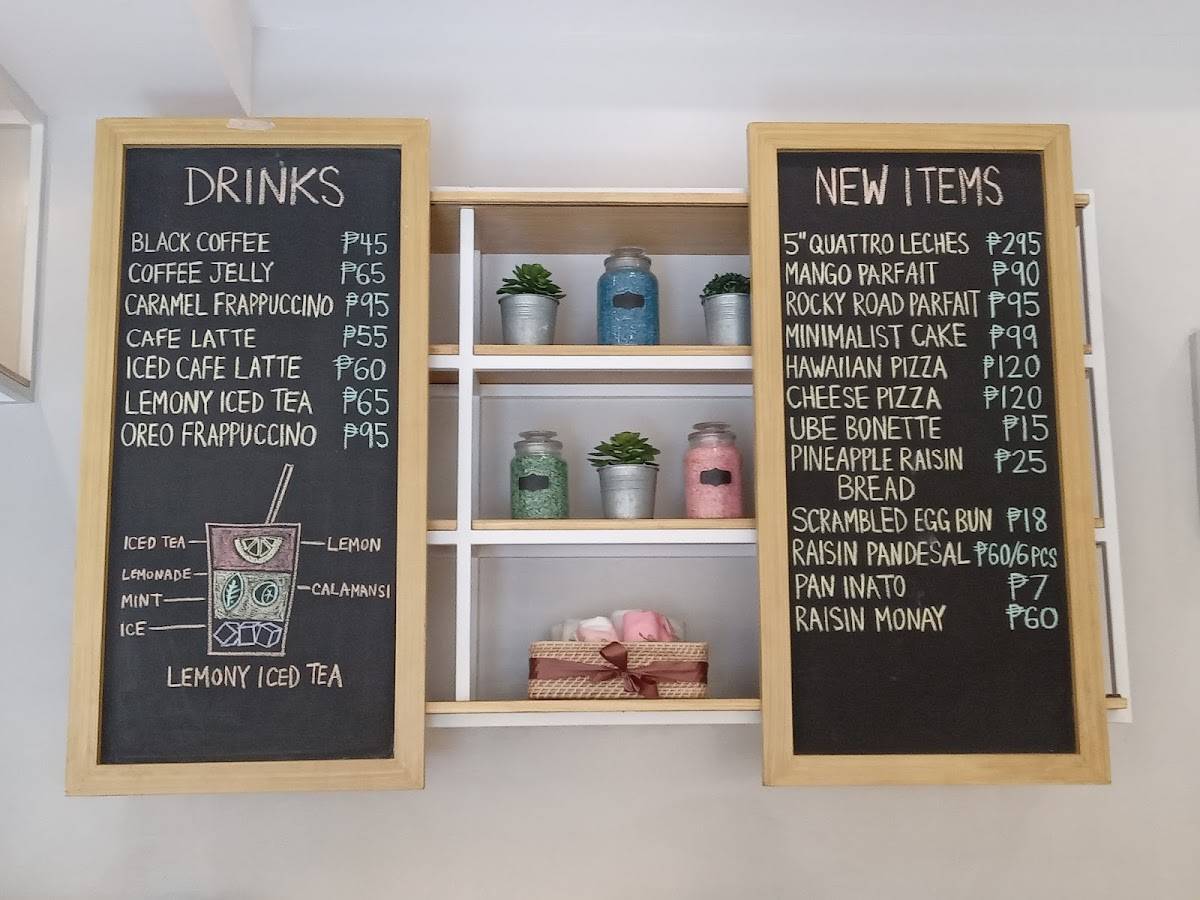 DRINKS
BLACK COFFEE ₱45
COFFEE JELLY ₱65
CARAMEL FRAPPUCCINO ₱95
CAFE LATTE ₱55
ICED CAFE LATTE ₱60
LEMONY ICED TEA ₱65
OREO FRAPPUCCINO ₱95
ICED TEA
LEMON
LEMONADE
CALAMANSI
MINT
ICE
LEMONY ICED TEA
NEW ITEMS
5" QUATTRO LECHES ₱295
MANGO PARFAIT ₱90
ROCKY ROAD PARFAIT ₱95
MINIMALIST CAKE ₱99
HAWAIIAN PIZZA ₱120
CHEESE PIZZA ₱120
UBE BONETTE ₱15
PINEAPPLE RAISIN ₱25
BREAD
SCRAMBLED EGG BUN ₱18
RAISIN PANDESAL ₱60/6PCS
PAN INATO ₱7
RAISIN MONAY ₱60